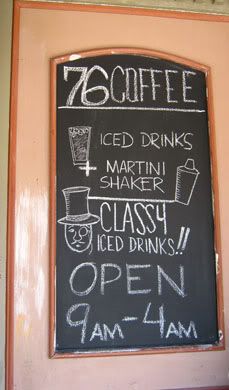 76 COFFEE
ICED DRINKS
+ MARTINI
SHAKER
CLASSY
ICED DRINKS!!
OPEN
9AM-4AM